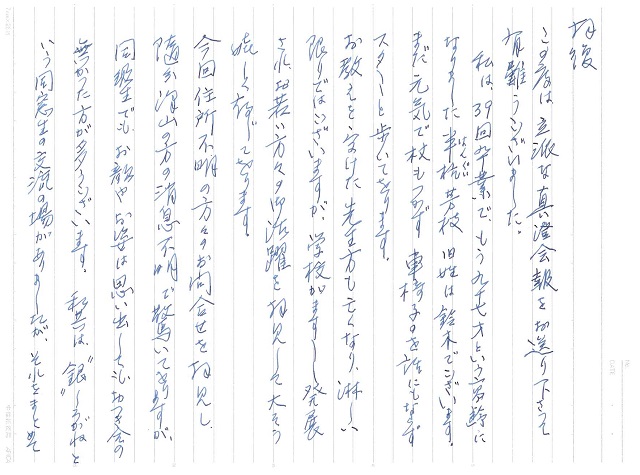 拝復
この度は立派な真澄会報をお送り下さって
有難うございました。
私は、39回卒業で、もう九十七才という高齢に
なりました半杭芳枝 旧姓は鈴木でございます。
はんぐい
まだ元気で杖もつかず 車椅子の を 話にもならず
スターと歩いております。
お教えを受けた先生方も亡くなり、淋しい
限りではございますが、学校がますます発展
され お若い方々の御活躍を拝見して大そう
嬉しく存じております。
今回住所不明の方々のお問合せを拝見し、
随分沢山の方の消息不明で驚いておりますが、
同級生でも、お顔やお姿は思い出してもおつき合の
無かった方が多うございます。 私共は、"銀"しろがねと
いう同窓生の交流の場がありましたが、それをまとめて